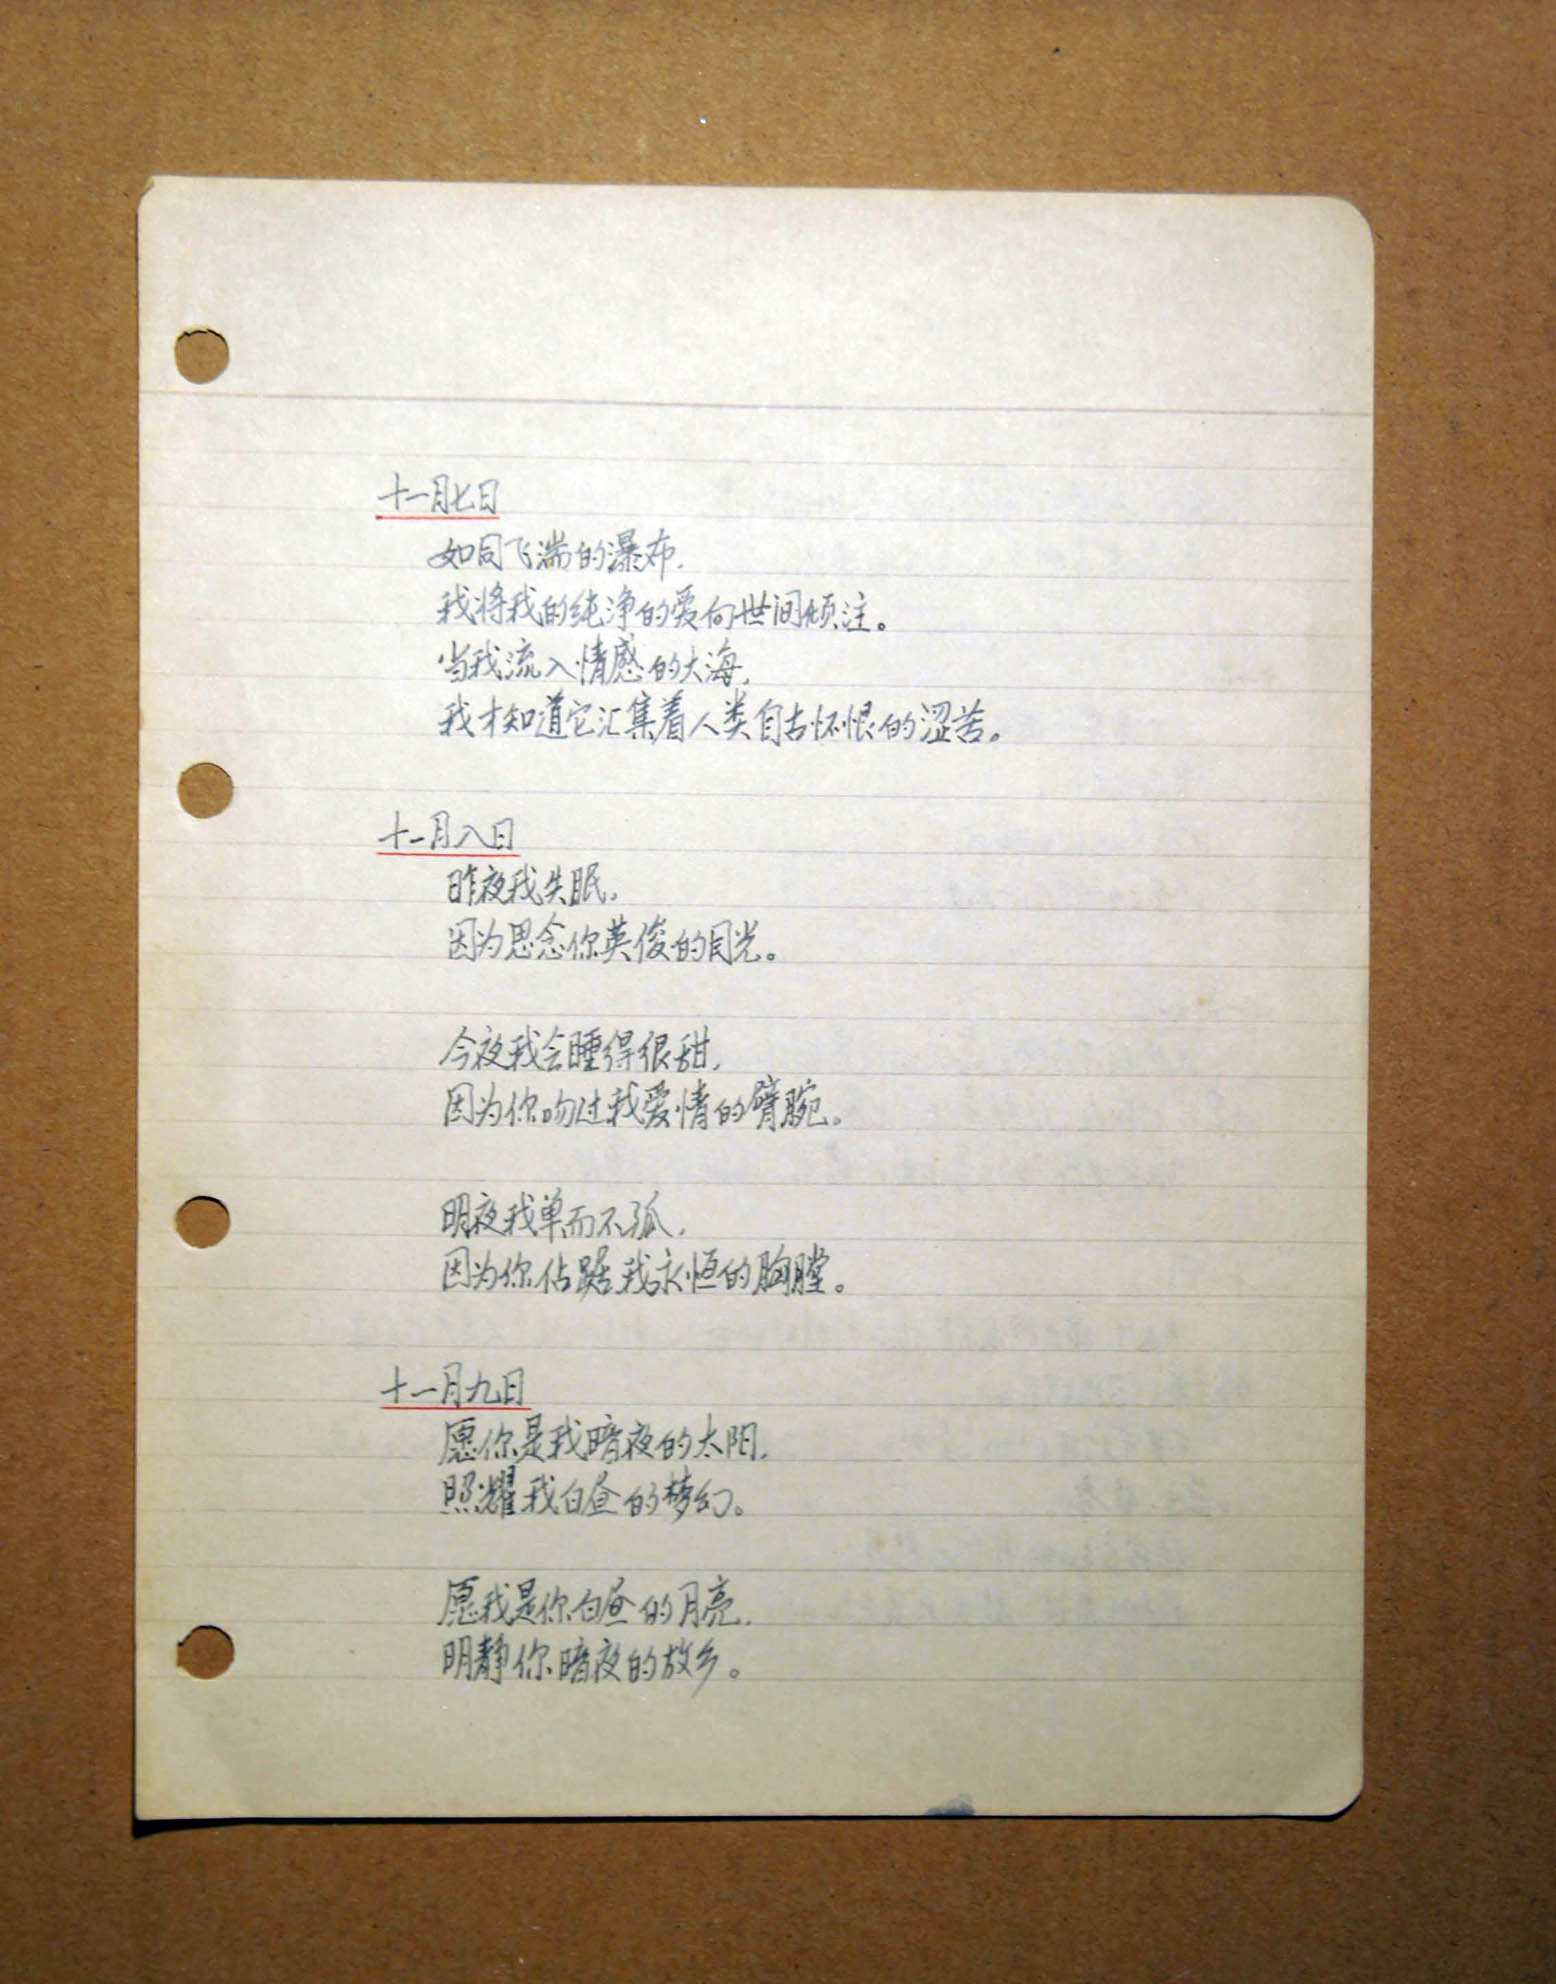 十一月七日
如同飞湍的瀑布,
我将我的纯净的爱向世间倾注。
当我流入情感的大海,
我才知道它汇集着人类自古怀恨的涩苦。
十一月八日
昨夜我失眠,
因为思念你英俊的目光。
今夜我会睡得很甜,
因为你吻过我爱情的臂腕。
明夜我单而不孤,
因为你佔踞我永恒的胸膛。
十一月九日
愿你是我暗夜的太阳,
照耀我白昼的梦幻。
愿我是你白昼的月亮,
明静你暗夜的故乡。